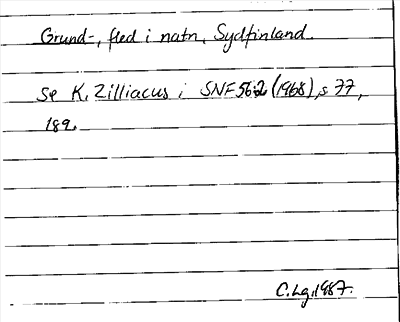 Grund-, fled i natn, Sydfinland.
Se K. Zilliacus i SNF 56:2 (1968), s 77,
189.
C.Lg. 1987.